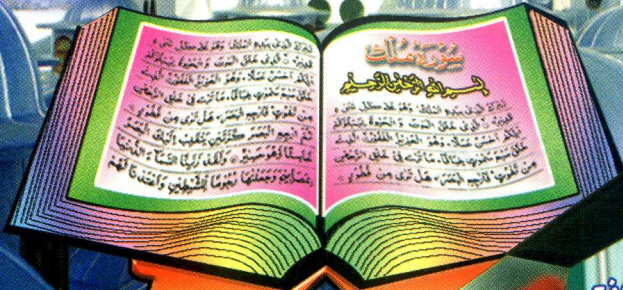 سورة ملك
بسم الله الرحمن الرحيم
تبرك الذي بيده الملك وهو على كل شيء
قدير الذي خلق الموت والحيوة ليبلوكم
ايكم احسن عملا وهو العزيز الغفور الذي
خلق سبع سموت طباقا ما ترى في خلق الرحمن
من تفوت فارجع البصر هل ترى من فطور
تبرك الذي بيده الملك وهو على كل شيء
قدير الذي خلق الموت والحيوة ليبلوكم
ايكم احسن عملا وهو العزيز الغفور الذي
خلق سبع سموت طباقا ما ترى في خلق الرحمن
من تفوت فارجع البصر هل ترى من فطور
ثم ارجع البصر كرتين ينقلب اليك البصر
خاسئا وهو حسير ولقد زينا السماء الدنيا
بمصابيح وجعلنها رجوما للشيطين واعتدنا لهم